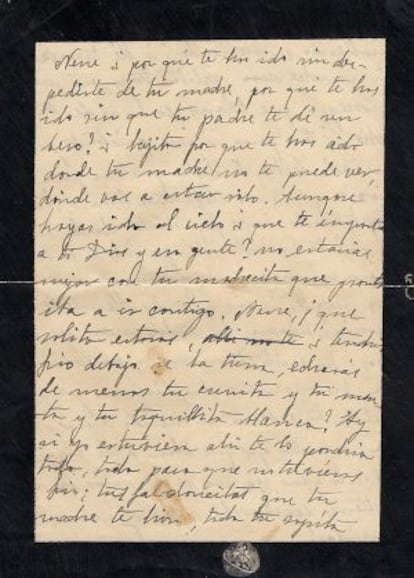 Nene ¿ por qué te has ido sin des-
pedirte de tu madre, por qué te has
ido sin que tu padre te dé un
beso? ¿ hijito por que te has ido
donde tu madre no te puede ver,
dónde vas a estar solo. Aunque
hayas ido al cielo ¿ que te importa
a ti Dios y su gente? no estarias
mejor con tu madrecita que
iba a ir contigo. Nene, ¡ que
solito estarás, ¿ tendrás
frio debajo de la tierra, echarás
de menos tu cunita y tu man-
ta y tu toquillita blanca? Ay
si yo estuviera ahi te lo pondria
todo, todo para que estuvieras
bien; tus faldoncitos que tu
madre te hizo, toda tu ropita